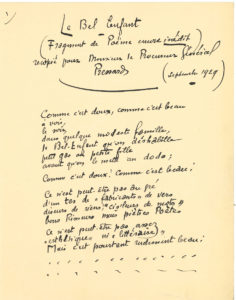 Le Bel Enfant
(Fragment de Poème encore inédit)
recopié pour Monsieur le Procureur Général
(septembre 1929)
Comme c'est doux, comme c'est beau
à voir,
le soir,
dans quelque modeste famille,
le Bel Enfant qu'on déshabille
petit gas ou petite fille
avant qu'on le mette au dodo ;
Comme c'est doux ! Comme c'est beau !
Ce n'est peut être pas au gré
d'un tas de « fabricants » de vers
de mots »
bons Rimeurs mais piètres Poètes
Ce n'est peut être pas assez
« esthétique » ni « littéraire »
Mais c'est pourtant rudement beau !